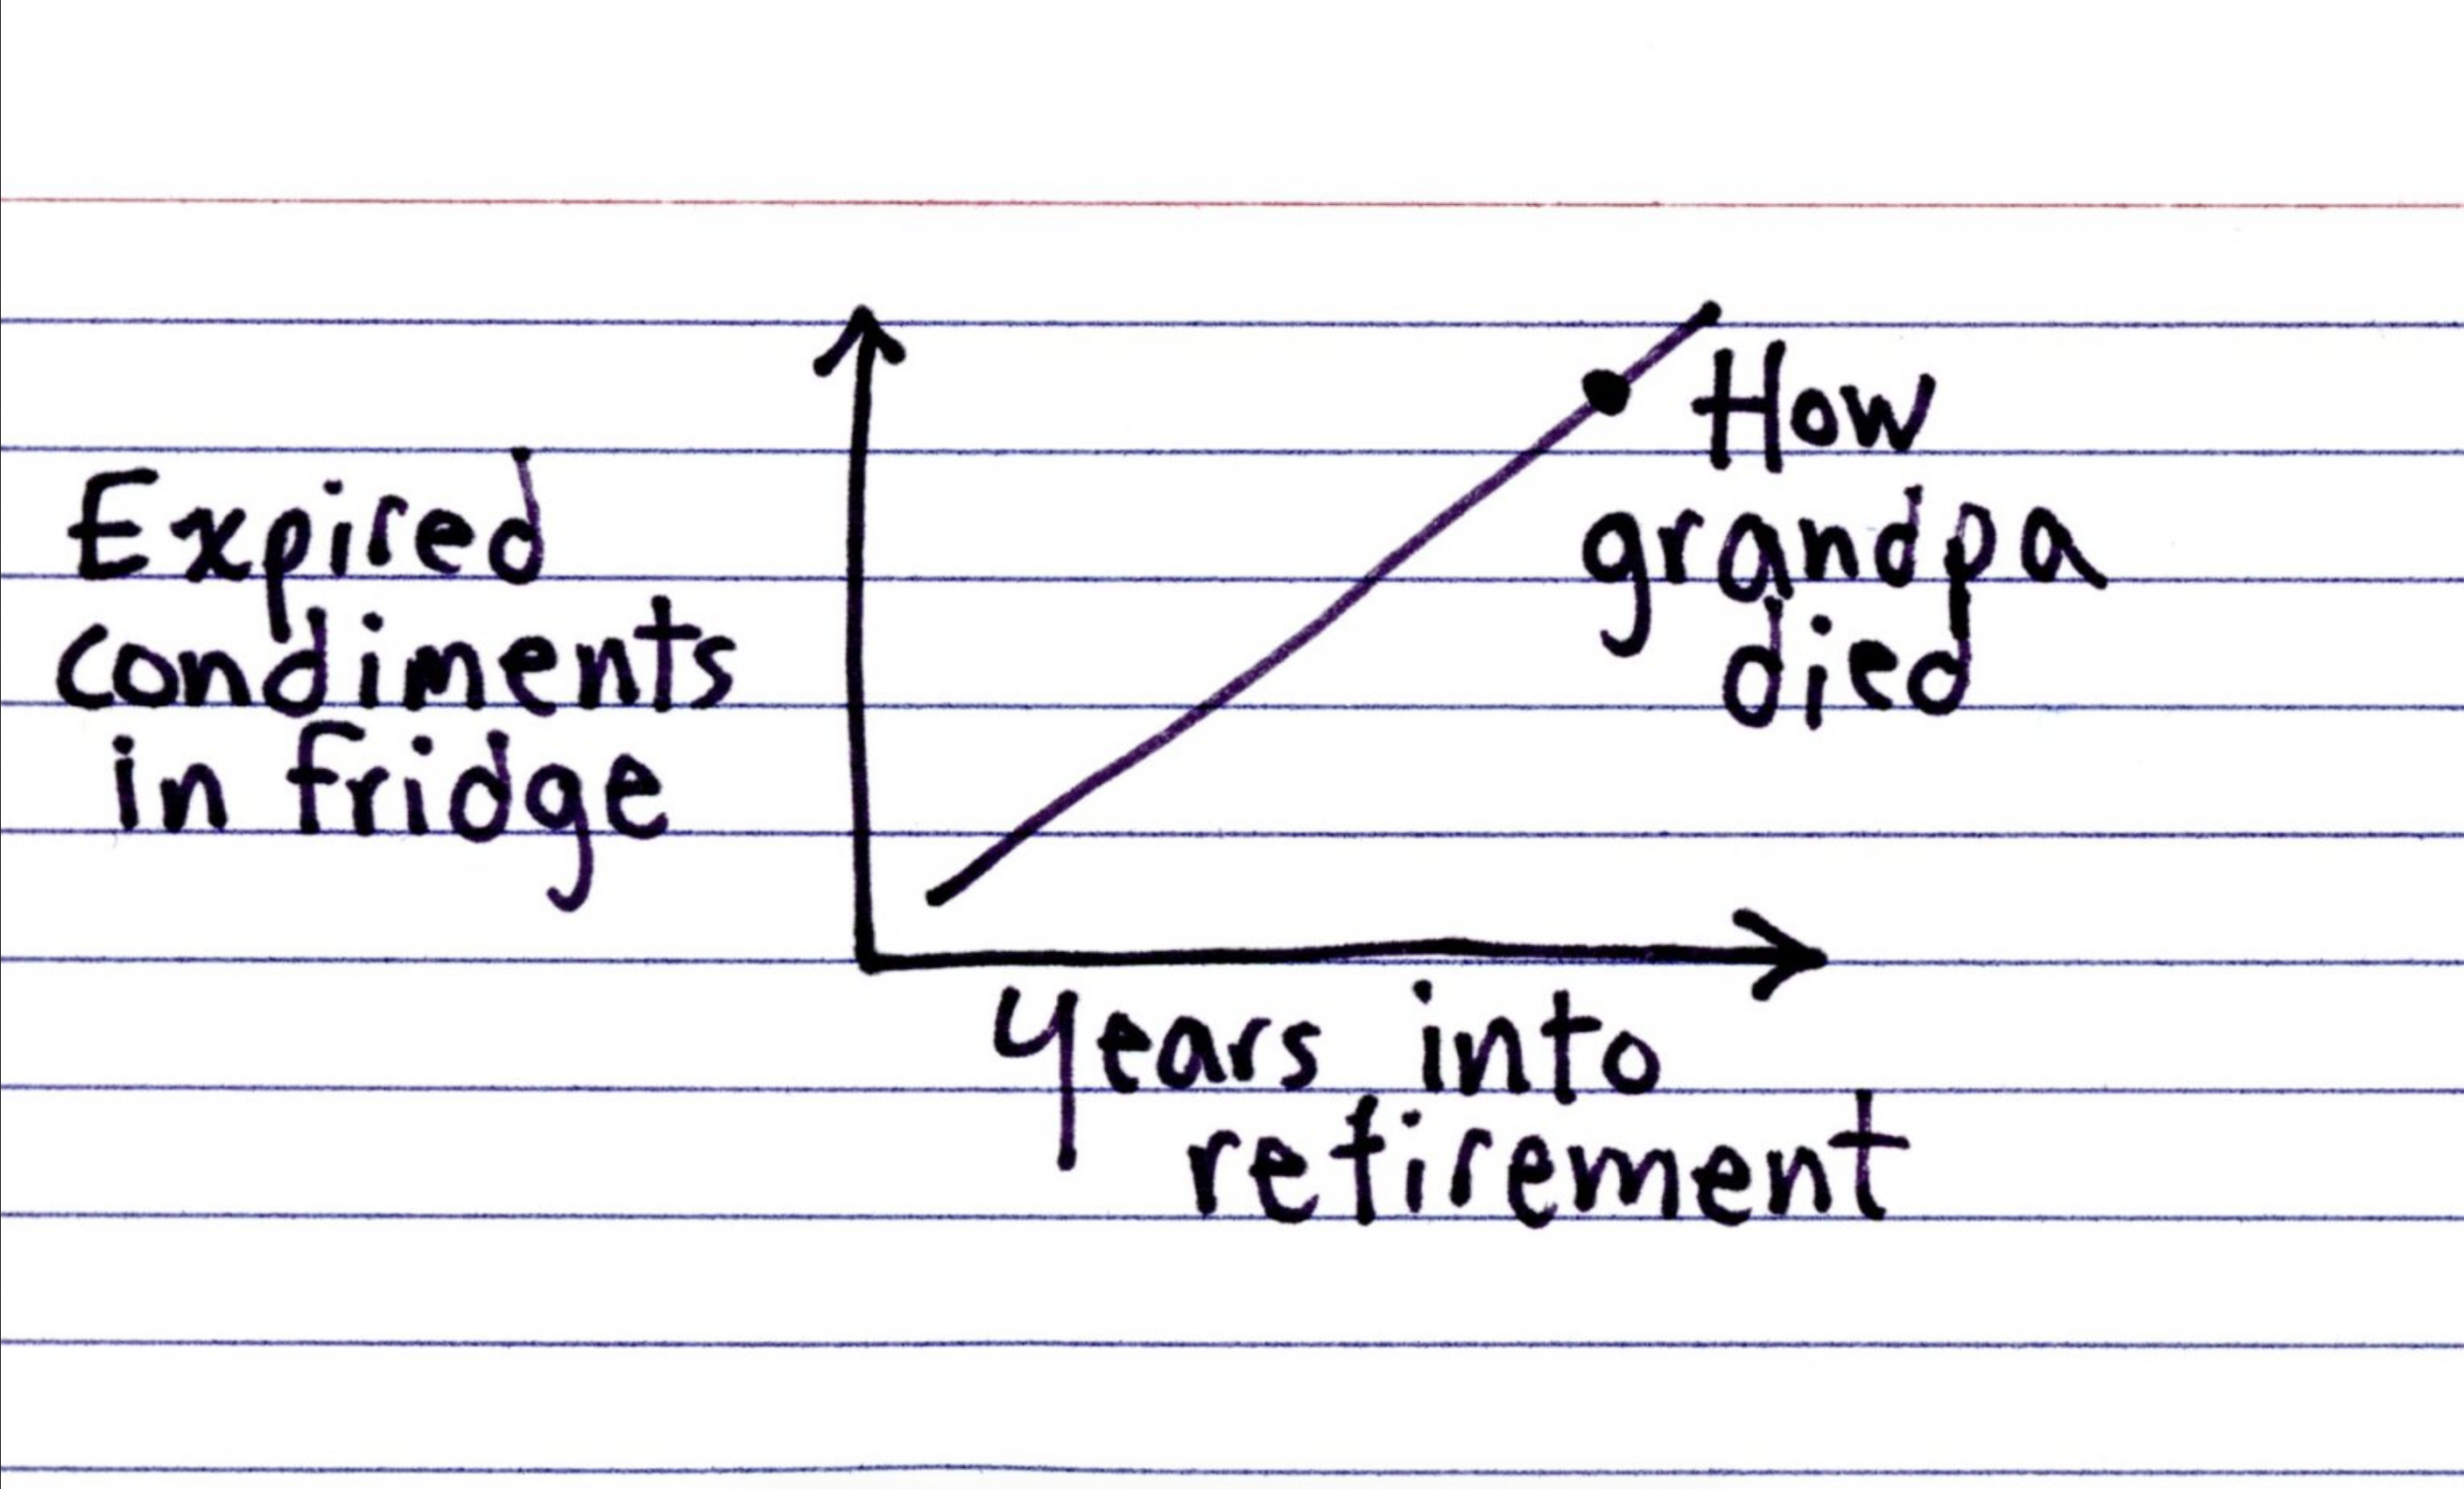 Expired
condiments
in fridge
How
grandpa
died
Years into
retirement